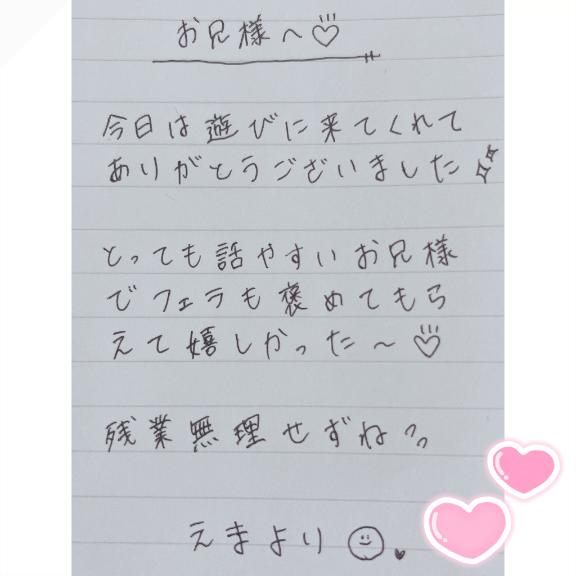 お兄様へ♡
今日は遊びに来てくれて
ありがとうございました✨
とっても話やすいお兄様
でフェラも褒めてもら
えて嬉しかった～♡
残業無理せずね
えまより